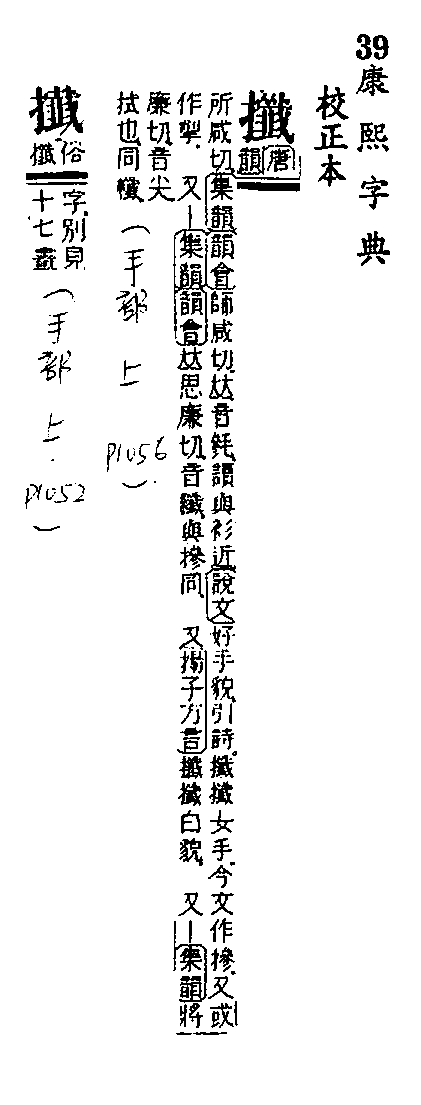 39 康熙字典
校正本
攕 唐韻
所咸切集韻韻會師咸切𠀤音毿讀與衫近說文好手貌引詩攕攕女手今文作摻又或
作掔 又一集韻韻會𠀤思廉切音纖與摻同 又揚子方言攕攕白貌 又一集韻將
廉切音尖
拭也同
(手部 上 P1056)
俗攕
字別見
十七畫
(手部 上 P1052)